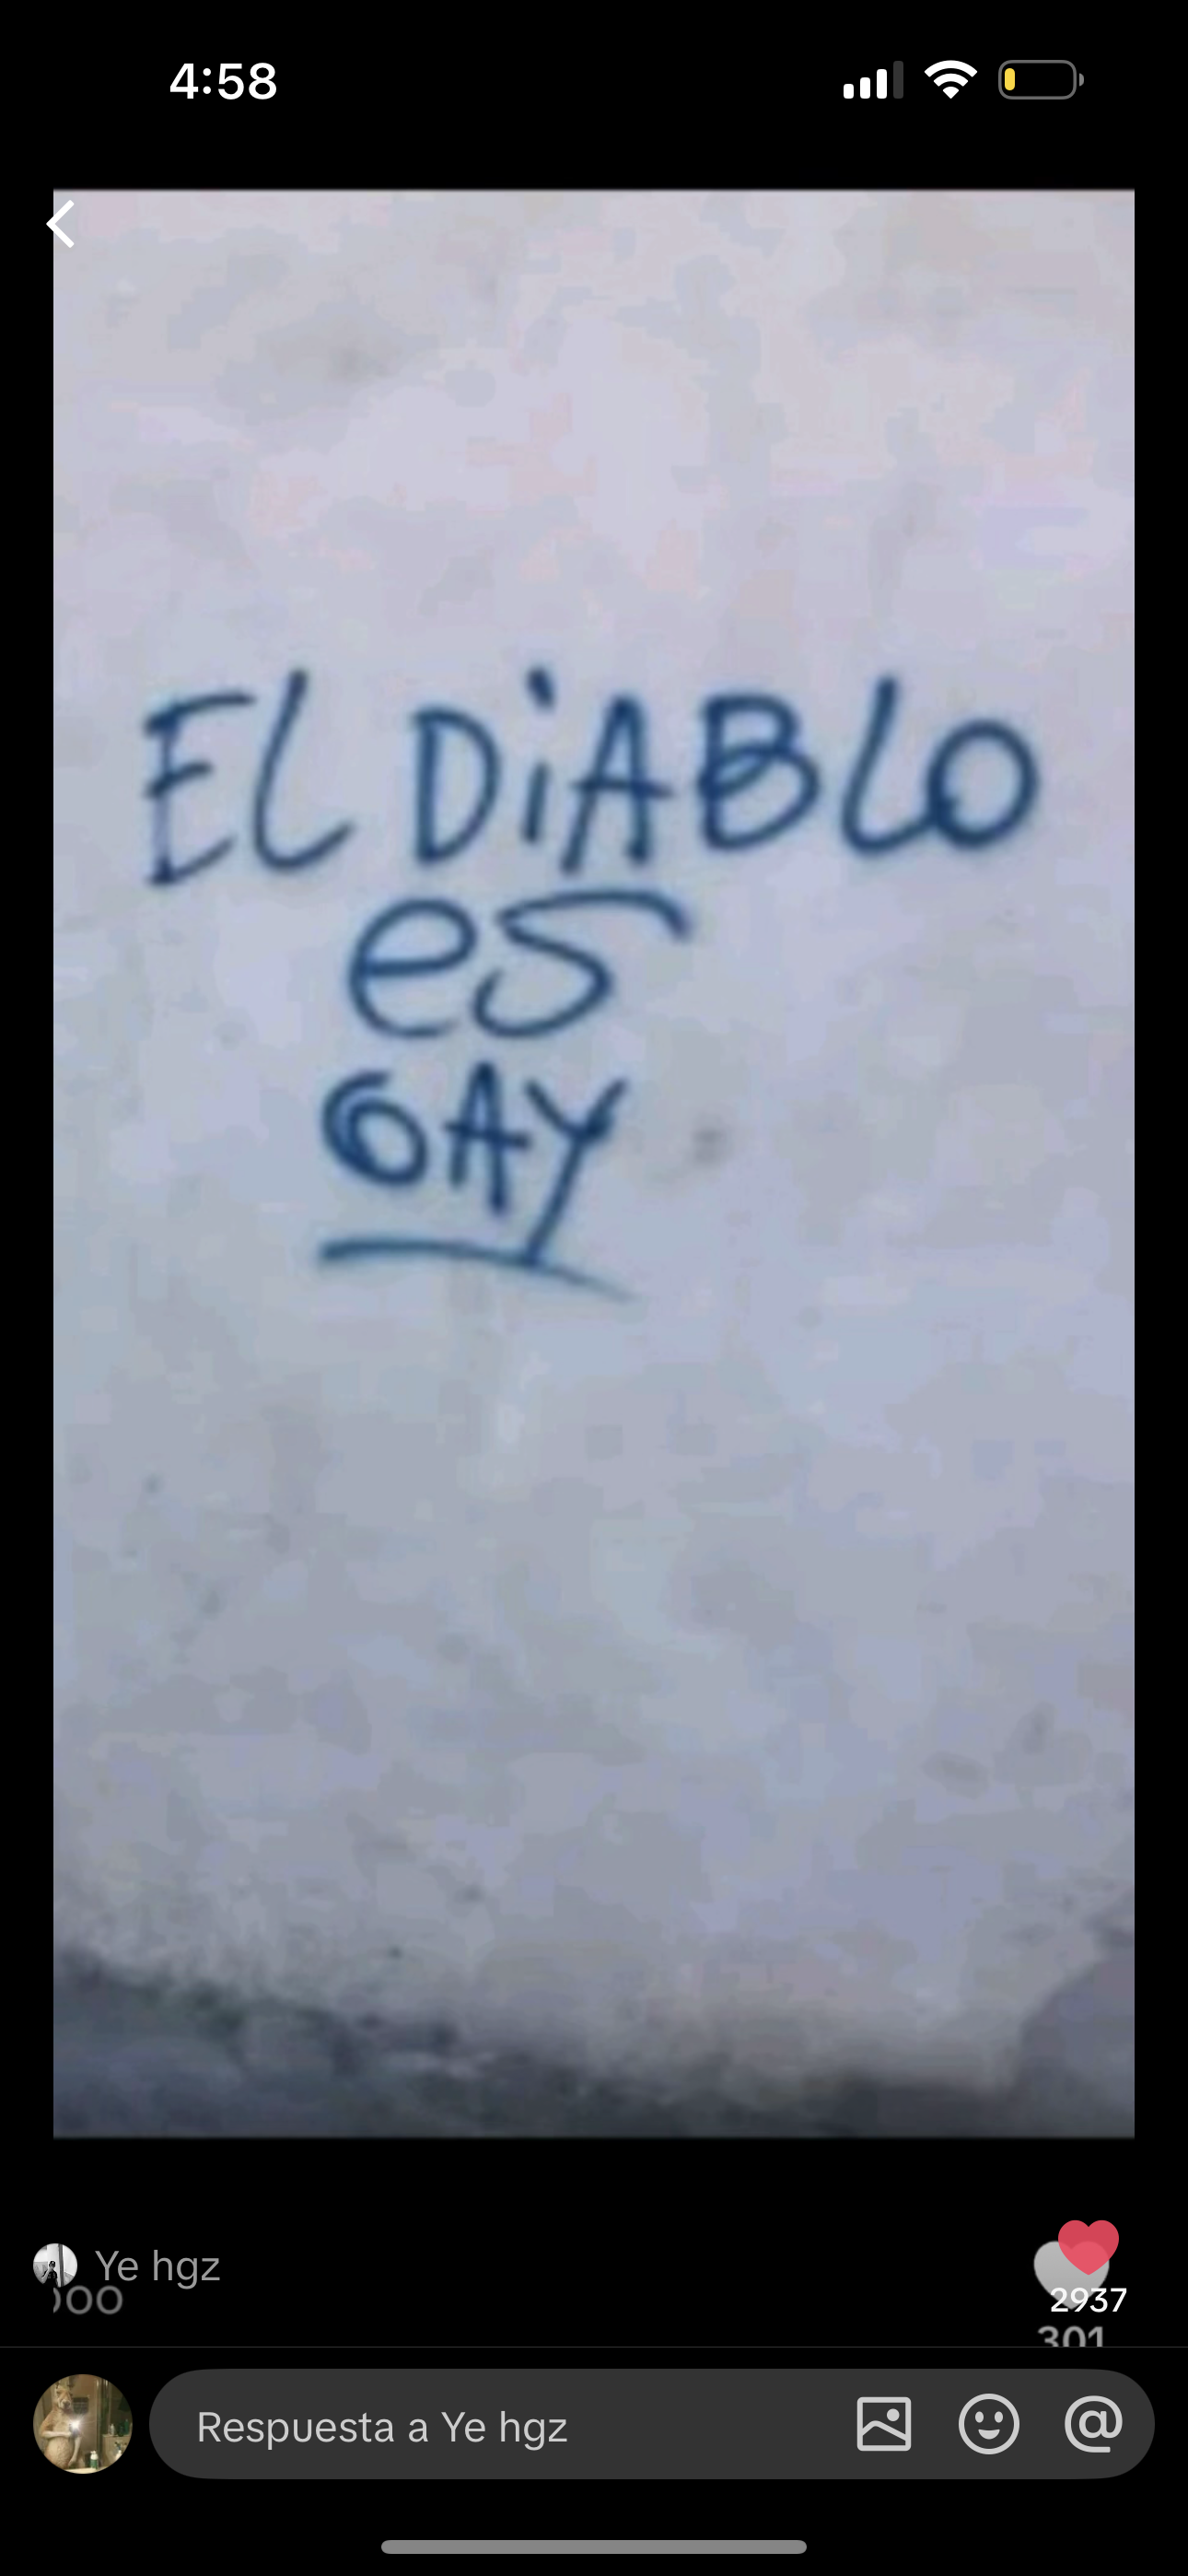 4:58
EL DiABLO
es
GAY
Ye hgz
2937
301
Respuesta a Ye hgz